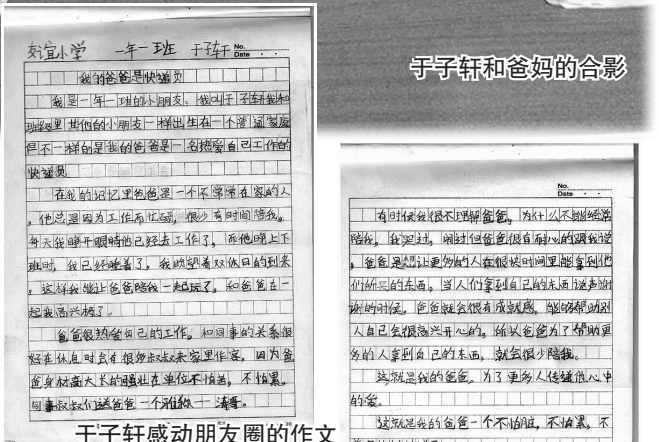 于子轩和爸妈的合影
交宜小学 一年一班 于子轩 No.
Date
我的爸爸是快递员
我是一年一班的小朋友，我叫于子轩我和
班级里其他的小朋友一样出生在一个普通家庭
但不一样的是我的爸爸是一名热爱自己工作的
快递员
在我的记忆里爸爸是一个不常常在家的人
，他总是因为工作而忙碌，很少有时间陪我。
每天我睁开眼睛他已经去工作了，而他晚上下
班时，我已经睡着了，我盼望着双休日的到来
，这样我能让爸爸陪我一起玩了，和爸爸在一
起我高兴极了。
爸爸很热爱自己的工作，和同事的关系很
好在休息时会有很多叔叔来家里作客，因为爸
爸身材高大长的强壮在单位不怕苦，不怕累，
同事叔叔们送爸爸一个准称——清哥。
于子轩感动朋友圈的作文
No.
Date
有时候我很不理解爸爸，为什么不能经常
陪我，我哭过，闹过但爸爸很有耐心的跟我说
，爸爸是想让更多的人在很快时间里能拿到他
们所买的东西，当人们拿到自己的东西说声谢
谢的时候，爸爸就会很有成就感，能够帮助别
人自己会很高兴开心的，所以爸爸为了帮助更
多的人拿到自己的东西，就会很少陪我。
这就是我的爸爸，为了更多人传递他心中
的爱。
这就是我的爸爸一个不怕脏，不怕累，不